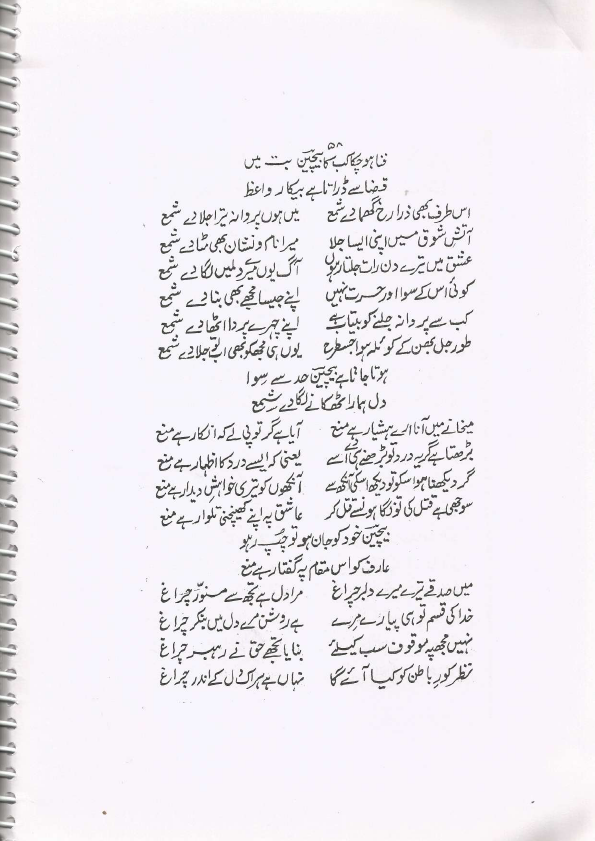 ۵۸
فنا ہو چکا کب کا بیچین بت میں
قضا سے ڈراتا ہے بیکار واعظ
اس طرف بھی ذرا رخ گھما دے شمع میں ہوں پروانہ ترا جلا دے شمع
آتش شوق میں اپنی ایسا جلا میرا نام و نشان بھی مٹا دے شمع
عشق میں تیرے دن رات جلتا رہوں آگ یوں میرے دلمیں لگا دے شمع
کوئی اس کے سوا اور حسرت نہیں اپنے جیسا مجھے بھی بنا دے شمع
کب سے پروانہ جلنے کو بیتاب ہے اپنے چہرے سے پردا اٹھا دے شمع
طور جل بھن کے کوئلہ ہوا جسطرح یوں ہی مجھکو بھی اب تو جلا دے شمع
ہوتا جاتا ہے بیچین حد سے سوا
دل ہمارا ٹھکانے لگا دے شمع
میخانے میں آنا ارے ہشیار ہے منع آیا ہے گر تو پی لے کہ انکار ہے منع
بڑھتا ہے گر یہ درد تو بڑھنے دے اسے یعنی کہ ایسے درد کا اظہار ہے منع
گر دیکھنا ہو اسکو تو دیکھ اسکی آنکھ سے آنکھوں کو تیری خواہش دیدار ہے منع
سوجھی ہے قتل کی تو نگاہوں سے قتل کر عاشق پہ اپنے کھینچنی تلوار ہے منع
بیچین خود کو جان ہو تو چپ رہو
عارف کو اس مقام پہ گفتار ہے منع
میں صدقے ترے میرے دلبر چراغ مرا دل ہے تجھ سے منور چراغ
خدا کی قسم تو ہی پیارے مرے ہے روشن مرے دل میں بنکر چراغ
نہیں مجھپہ موقوف سب کیلئے بنایا تجھے حق نے رہبر چراغ
نظر کور باطن کو کیا آئے گا نہاں ہے ہر اک دل کے اندر چراغ